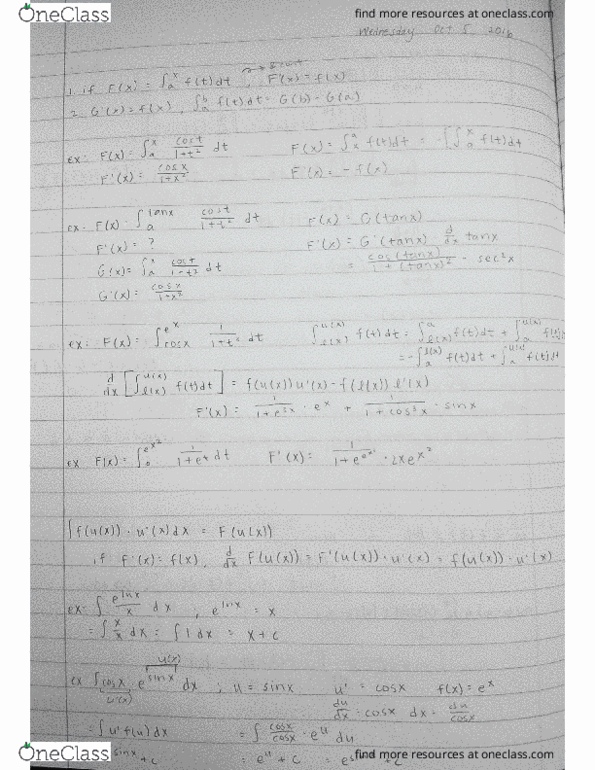 OneClass
find more resources at oneclass.com
Wednesday Oct 5 2016
1. if F(x) = ∫ₐˣ f(t)dt , F'(x) = f(x)
2. G'(x) = f(x) , ∫ₐᵇ f(t)dt = G(b) - G(a)
ex: F(x) = ∫ₐˣ cost/(1+t²) dt    F(x) = ∫ₓᵃ f(t)dt = -∫ₐˣ f(t)dt
F'(x) = cosx/(1+x²)    F'(x) = -f(x)
ex. F(x) = ∫ₐ^(tanx) cost/(1+t²) dt    F(x) = G(tanx)
F'(x) = ?    F'(x) = G'(tanx) d/dx tanx
G(x) = ∫ₐˣ cost/(1+t²) dt    = cos(tanx)/(1+(tanx)²) · sec²x
G'(x) = cosx/(1+x²)
ex: F(x) = ∫_(cosx)^(eˣ) 1/(1+t²) dt    ∫_(l(x))^(u(x)) f(t)dt = ∫_(l(x))^a f(t)dt + ∫ₐ^(u(x)) f(t)dt
= -∫ₐ^(l(x)) f(t)dt + ∫ₐ^(u(x)) f(t)dt
d/dx [∫_(l(x))^(u(x)) f(t)dt] = f(u(x))u'(x) - f(l(x))l'(x)
F'(x) = 1/(1+e²ˣ) · eˣ + 1/(1+cos²x) · sinx
ex F(x) = ∫₀^(e^(x²)) 1/(1+eᵗ) dt    F'(x) = 1/(1+e^(e^(x²))) · 2xe^(x²)
∫f(u(x)) · u'(x)dx = F(u(x))
if F'(x) = f(x), d/dx F(u(x)) = F'(u(x)) · u'(x) = f(u(x)) · u'(x)
ex: ∫ e^(lnx)/x dx , e^(lnx) = x
= ∫ x/x dx = ∫ 1 dx = x + c
u(x)
ex ∫ cosx e^(sinx) dx ; u = sinx    u' = cosx    f(x) = eˣ
u'(x)    du/dx = cosx    dx = du/cosx
= ∫ u'f(u)dx    = ∫ cosx/cosx · eᵘ du
sinx + c    = eᵘ + c
OneClass
find more resources at oneclass.com